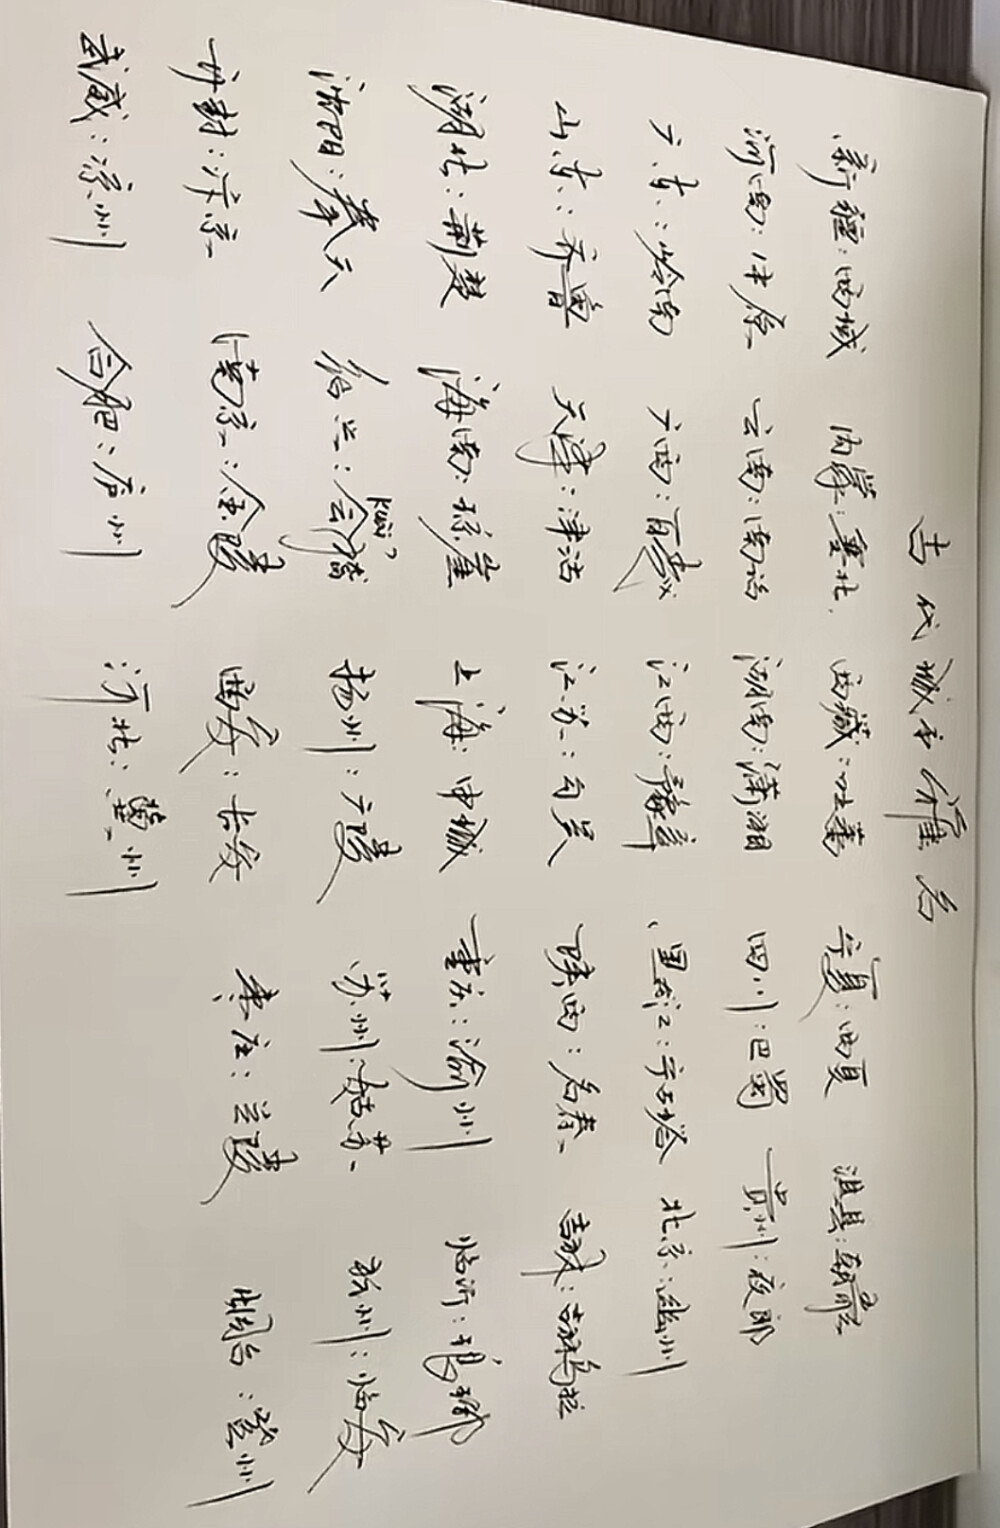 古代城市雅名
新疆:西域 内蒙:塞北 西藏:吐蕃 宁夏:西夏 淇县:朝歌
河南:中原 云南:南诏 湖南:潇湘 四川:巴蜀 贵州:夜郎
广东:岭南 广西:百越 江西:豫章 黑龙江:宁古塔 北京:幽州
山东:齐鲁 天津:津沽 江苏:勾吴 陕西: 吉林:吉林乌拉
湖北:荆楚 海南:琼崖 上海:申城 重庆:渝州 临沂:琅琊
沈阳:奉天 绍兴:会稽 扬州:广陵 苏州:姑苏 杭州:临安
开封:汴京 南京:金陵 西安:长安 枣庄:兰陵 烟台:登州
武威:凉州 合肥:庐州 河北:冀州